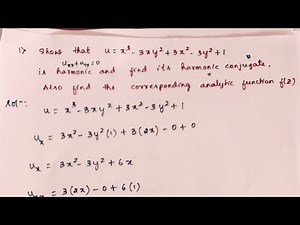 1) Show that u = x³ - 3xy² + 3x² - 3y² + 1
uₓₓ + uᵧᵧ = 0
is harmonic and find its harmonic conjugate.
Also find the corresponding analytic function f(z)
Sol:-
u = x³ - 3xy² + 3x² - 3y² + 1
uₓ = 3x² - 3y²(1) + 3(2x) - 0 + 0
uₓ = 3x² - 3y² + 6x
uₓₓ = 3(2x) - 0 + 6(1)